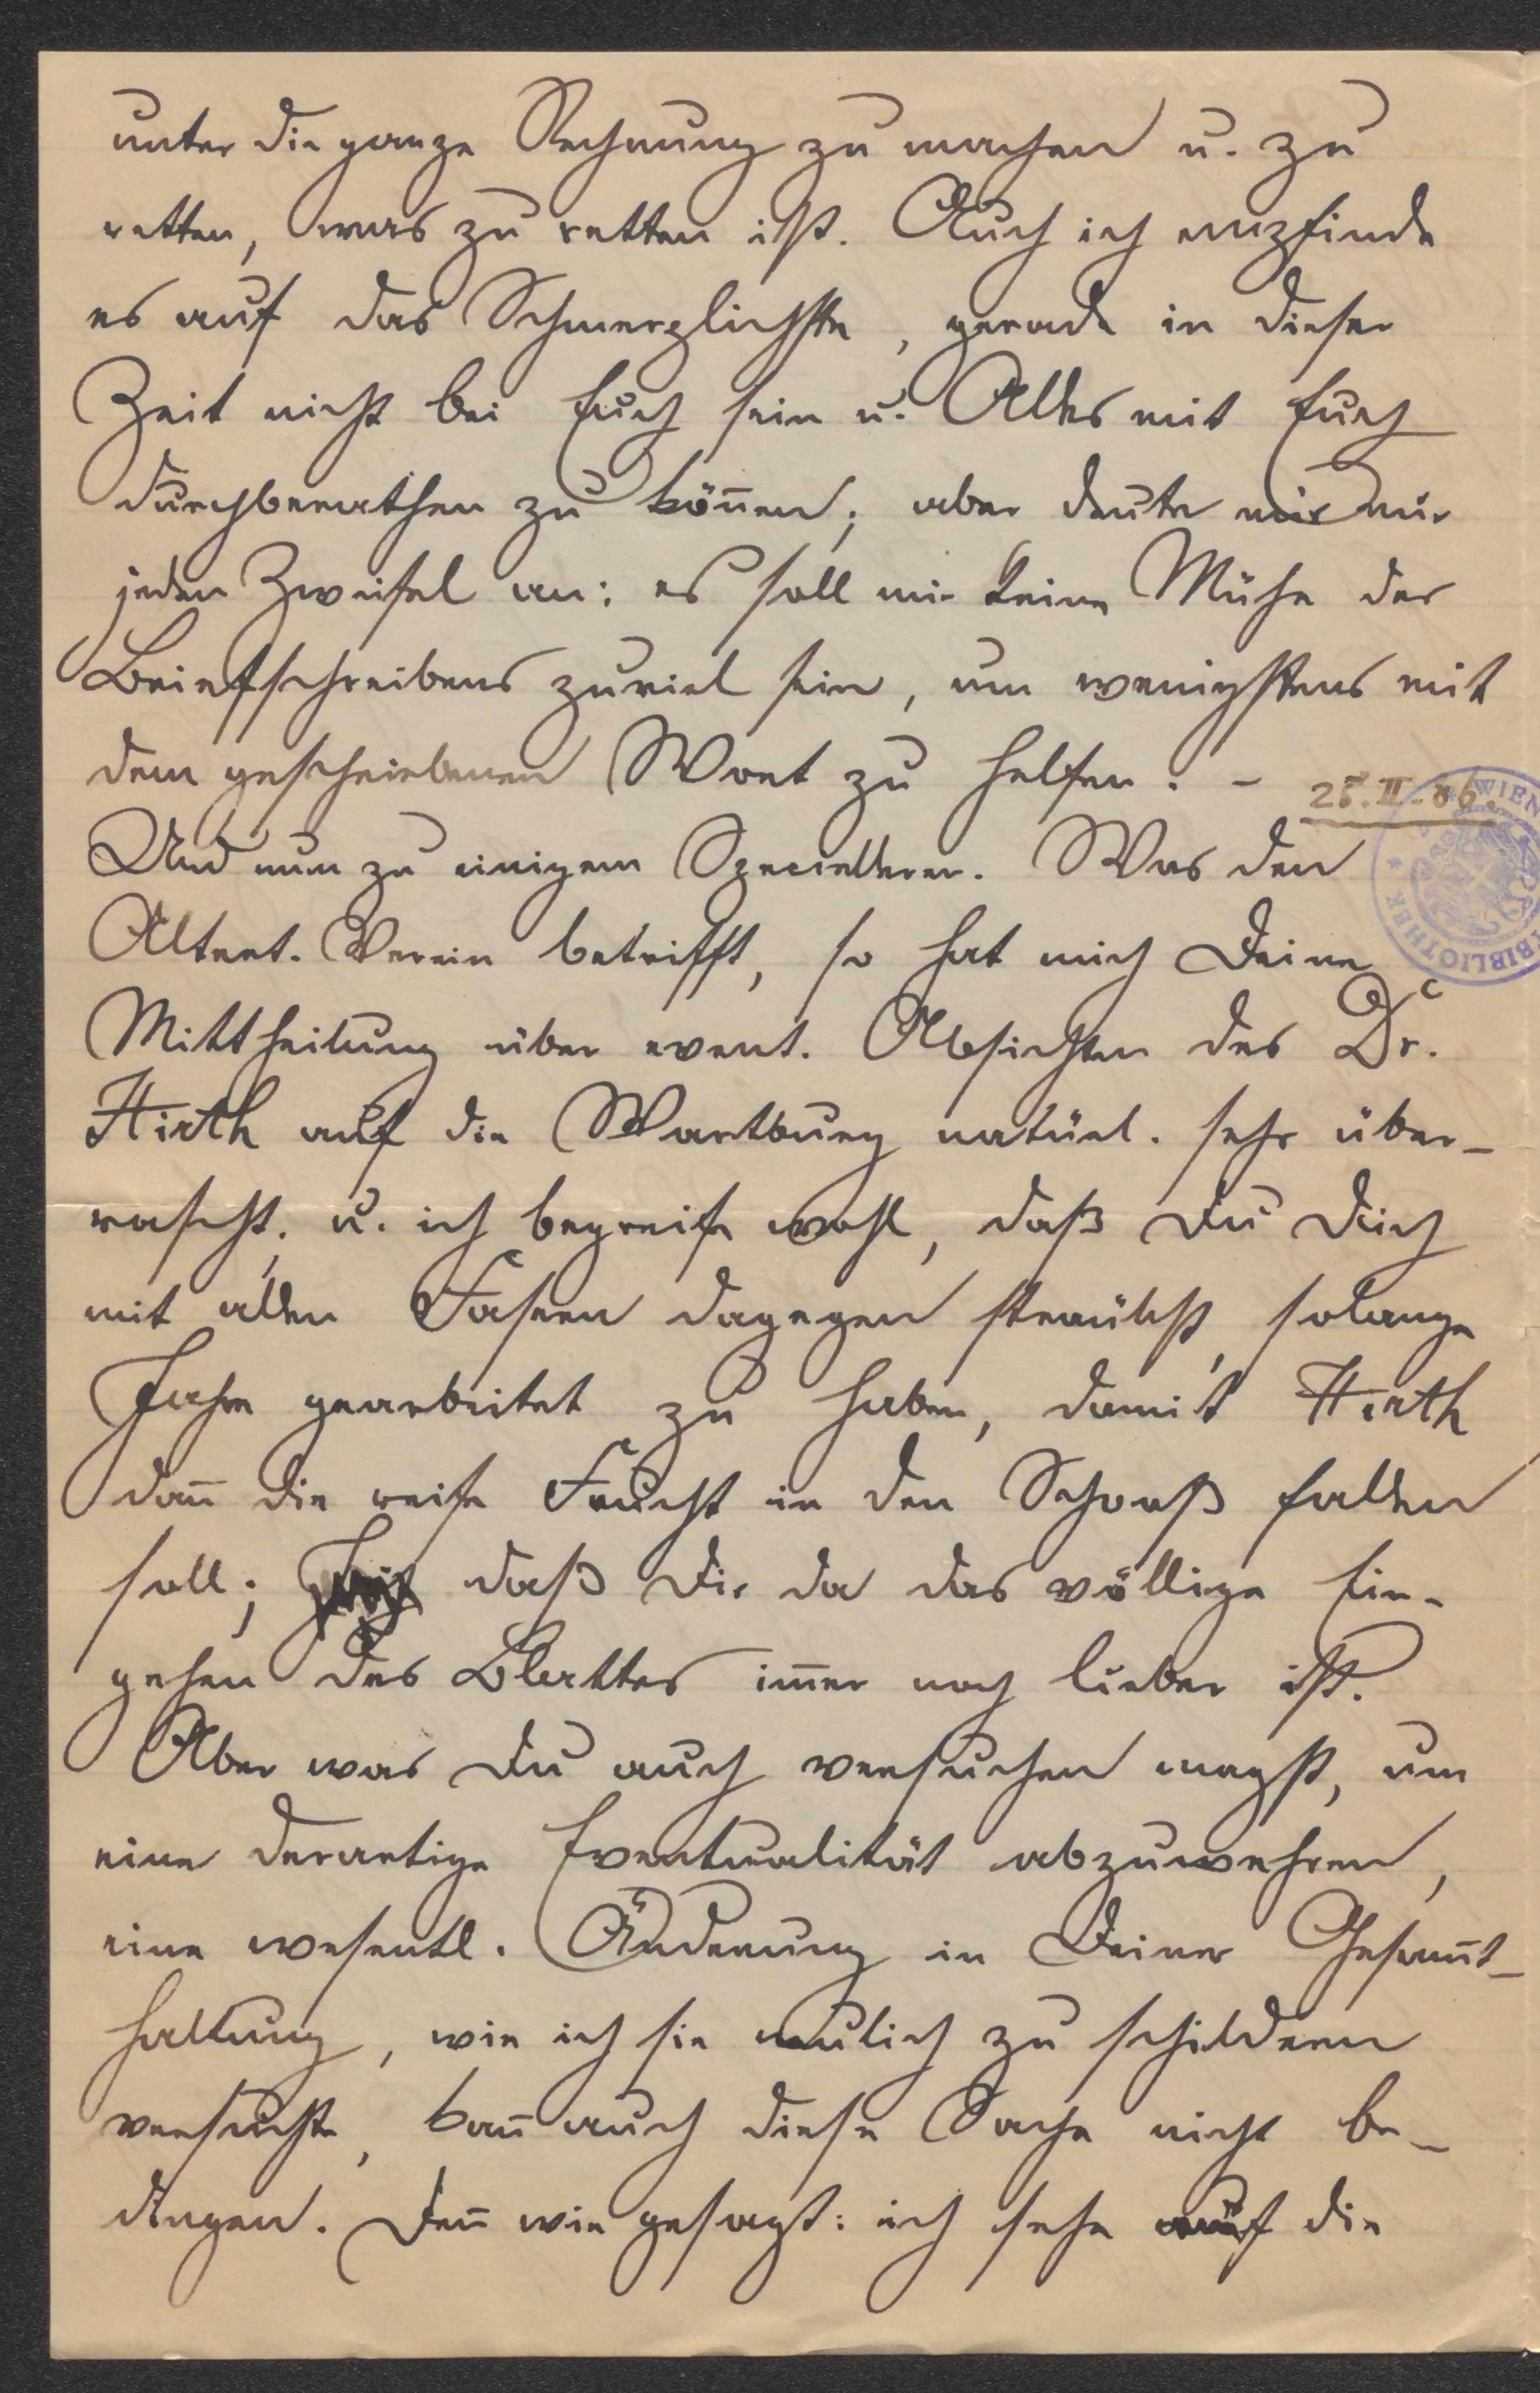 unter die ganze Rechnung zu machen u. zu
retten, was zu retten ist. Auch ich empfinde
es auf das Schmerzlichste, gerade in dieser
Zeit nicht bei Euch sein u. Alles mit Euch
durchberathen zu können; aber deute mir nur
jeden Zweifel an: es soll mir keine Mühe des
Briefschreibens zuviel sein, um wenigstens mit
dem geschriebenen Wort zu helfen. –
25. II. 86.
Und nun zu einigem Specielleren. Was den
Altert. Verein betrifft, so hat mich Deine
Mittheilung über event. Absichten des Dr.
Hirth auf die Wartburg natürl. sehr über-
rascht, u. ich begreife wohl, daß Du Dich
mit allen Fasern dagegen sträubst, solange
Jahre gearbeitet zu haben, damit Hirth
dañ die reife Frucht in den Schooß fallen
soll; daß Dir da das völlige Ein-
gehen des Blattes im̃er noch lieber ist.
Aber was Du auch versuchen magst, um
eine derartige Eventualität abzuwehren,
eine wesentl. Änderung in Deiner Gesam̃t-
haltung, wie ich sie neulich zu schildern
versuchte, kañ auch diese Sache nicht be-
dingen. Deñ wie gesagt: ich sehe auf die
WIEN
BIBLIOTHEK